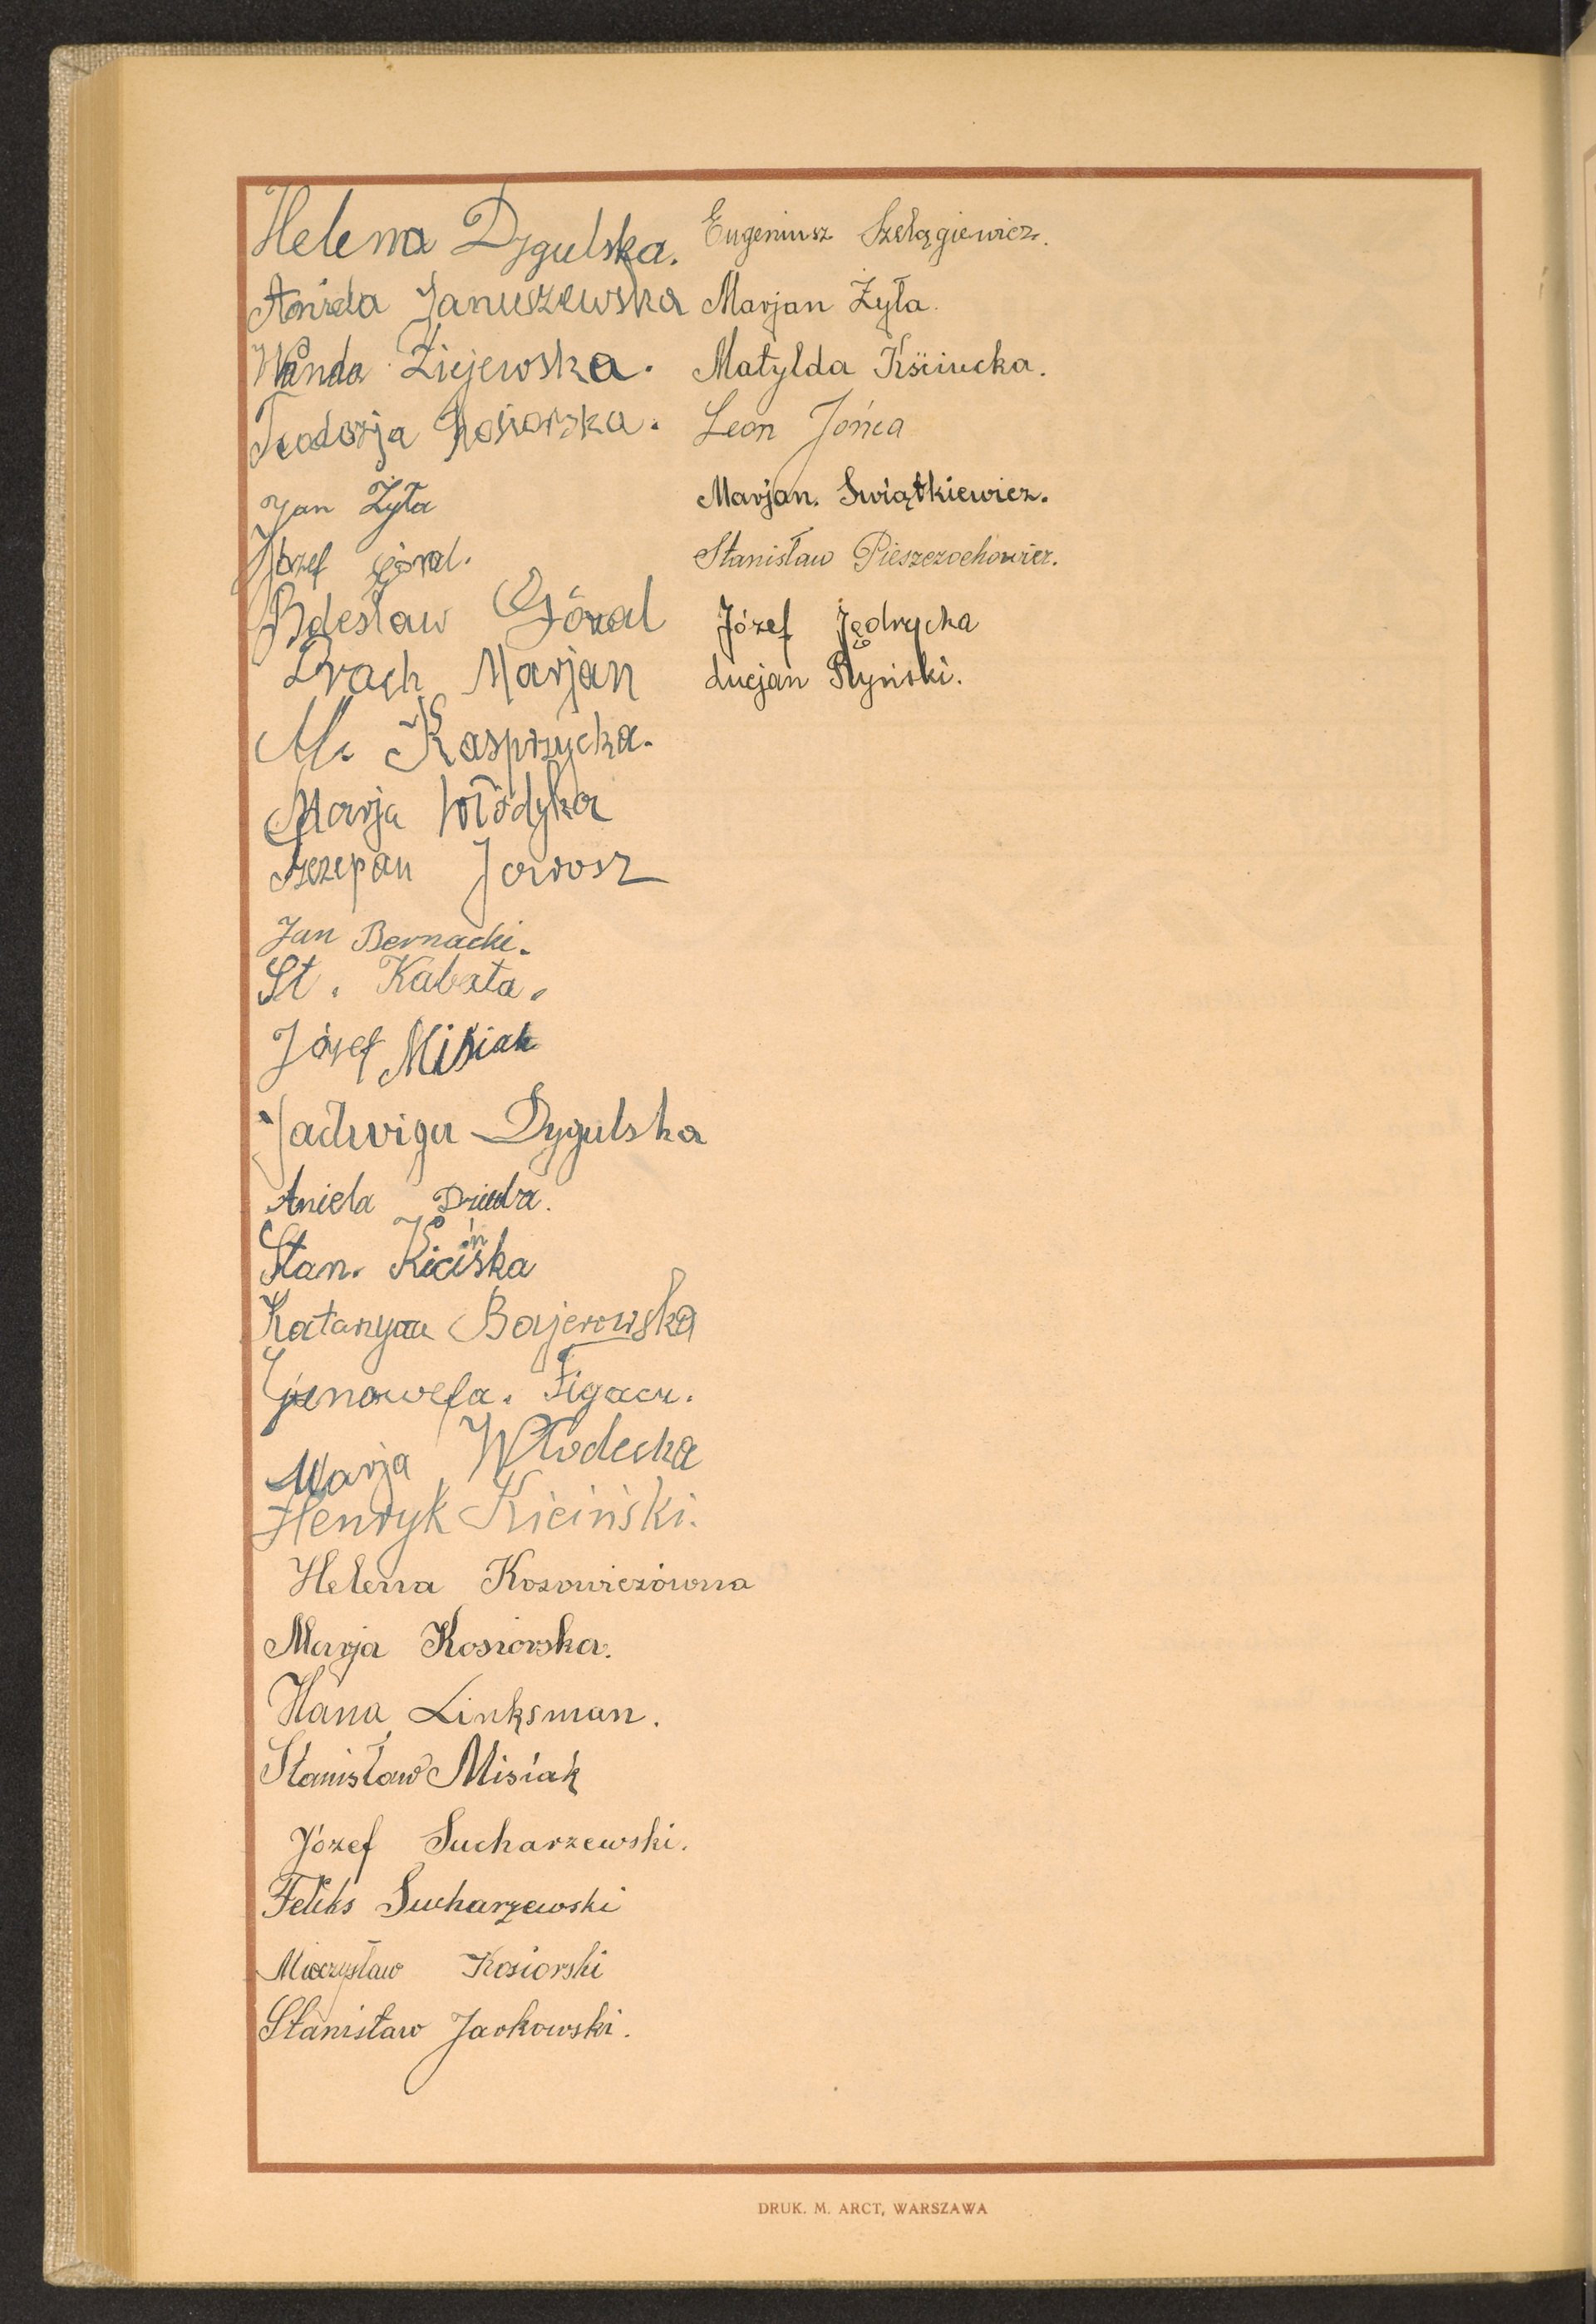 Helena Dygulska.
Aniela Januszewska
Wanda Ziejewska.
Teodozja Kosiorska.
Jan Żyła
Józef Góral.
Bolesław Góral
Drach Marjan
M. Kasprzycka.
Marja Włodyka
Szczepan Jarosz
Jan Bernacki.
St. Kabata.
Józef Misiak
Jadwiga Dygulska
Aniela
Stan. Kicińska
Katarzyna Bajerowska
Genowefa. Figacz.
Marja Włodecka
Henryk Kiciński.
Helena Kosowiczówna
Marja Kosiorska.
Hana Linksman.
Stanisław Misiak
Józef Sucharzewski.
Feliks Sucharzewski
Mieczysław Kosiorski
Stanisław Jarkowski.
Eugeniusz Szelągiewicz.
Marjan Żyła.
Matylda
Leon Jońca
Marjan. Swiątkiewicz.
Stanisław Pieszczochowicz.
Józef Jędrycka
Lucjan Płyński.
DRUK. M. ARCT, WARSZAWA